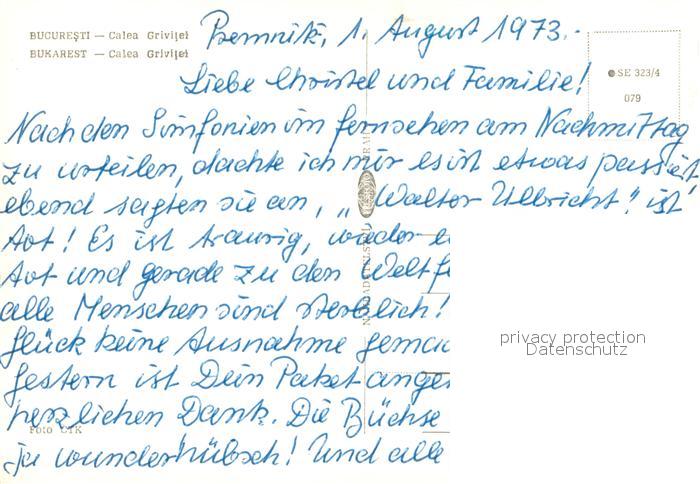 BUCUREȘTI — Calea Griviței
BUKAREST — Calea Griviței
Premnitz, 1. August 1973.-
SE 323/4
079
Liebe Christel und Familie!
Nach den Simfonien im fernsehen am Nachmittag
zu urteilen, dachte ich mir es ist etwas passiert
ebend sagten sie an, „Walter Ulbricht" ist
tot! Es ist traurig, wieder
tot und gerade zu den Weltfe
alle Menschen sind sterblich!
Glück keine Ausnahme gemac
Gestern ist Dein Paket ange
herzlichen Dank. Die Büchse
ja wunderhübsch! Und alle
Foto CTK
privacy protection
Datenschutz